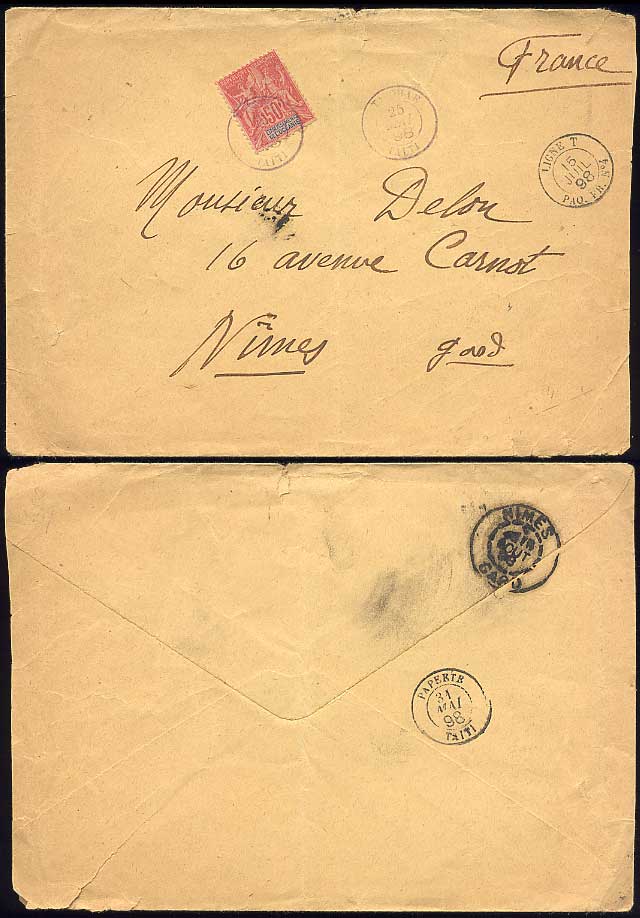 France
50c
TAITI
25
98
TAITI
LIGNE T
15
JUIL
98
PAQ. FR. Nº4
Monsieur Delon
16 avenue Carnot
Nîmes gard
NIMES
AOUT
GARD
PAPEETE
31
MAI
98
TAITI